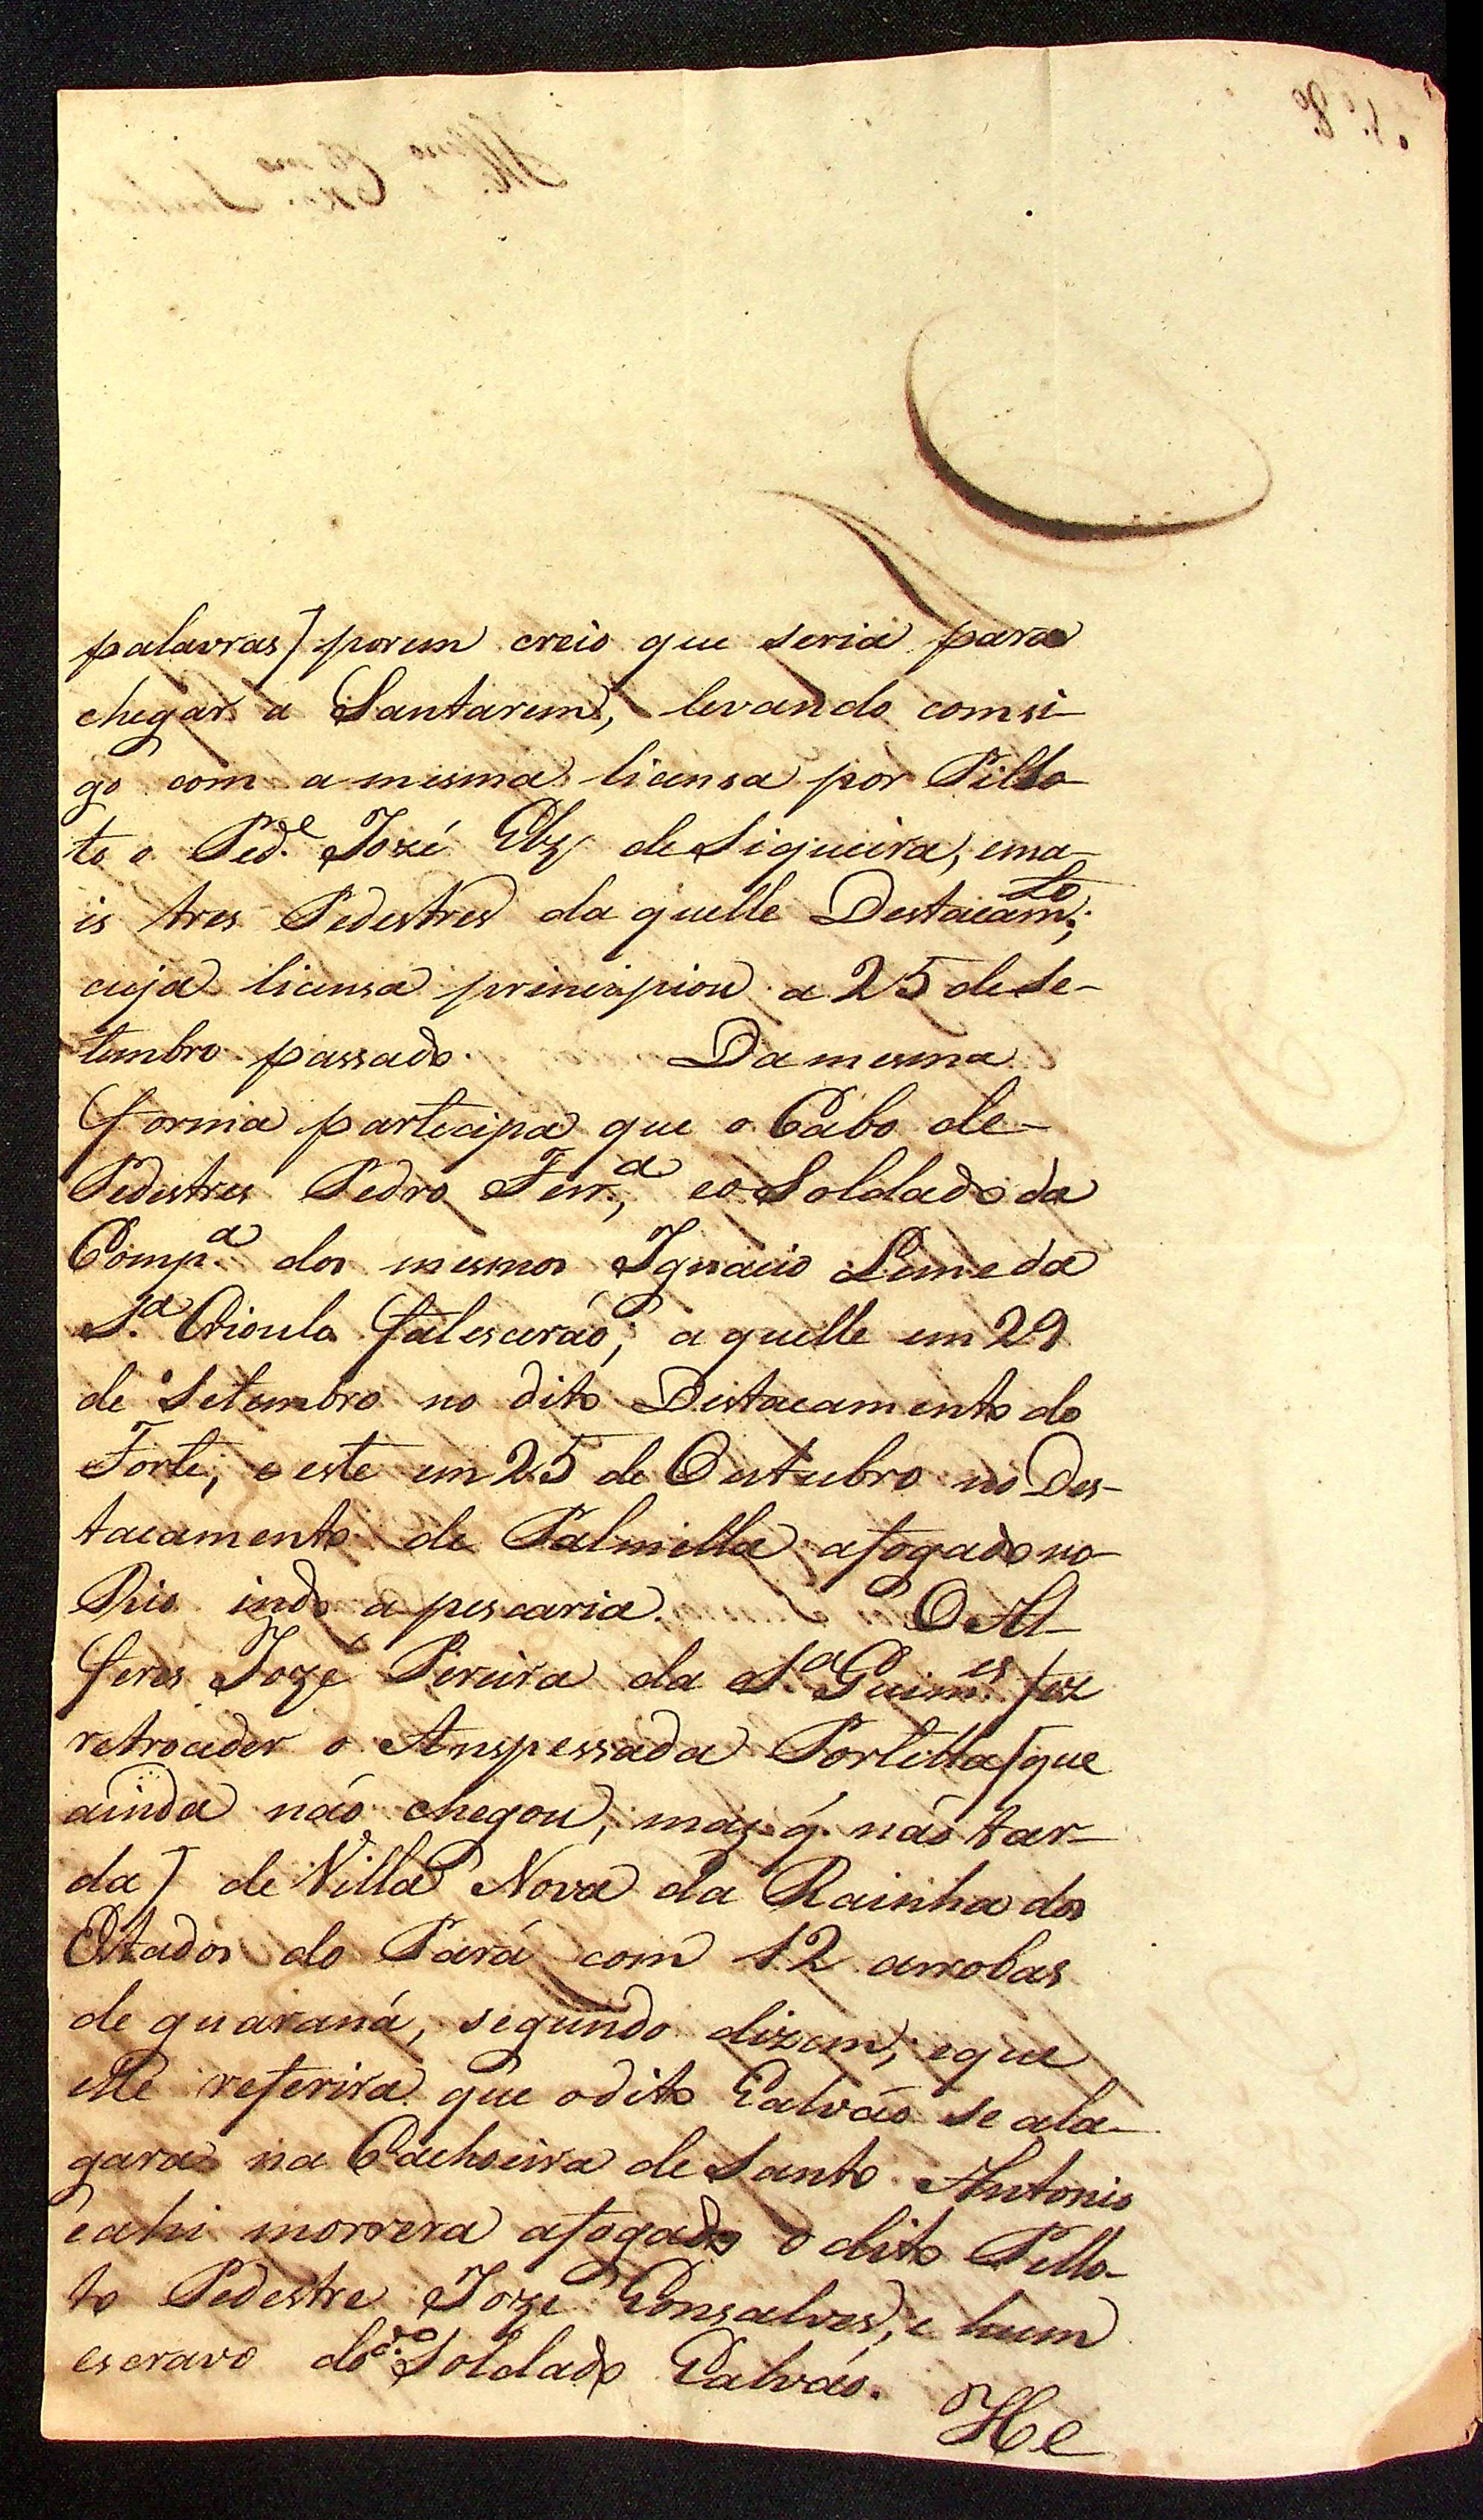 palavras] porem creio que seria para
chegar a Santarem, levando comsi-
go com a mesma licensa por Pillo-
to o Ped.e Jozé Glz de Siqueira, ema-
is tres Pedestres da quelle Destacam.to;
cuja licensa principiou a 25 de Se-
tembro passado. Da mesma
forma partecipa que o Cabo de-
Pedestres Pedro Ferr.a, eo Soldado da
Comp.a dos mesmos Ignacio Leme da
S.a Crioulo falescerão; a quelle em 29
de Setembro no dito Destacamento do
Forte; e este em 25 de Outubro no Des-
tacamento de Palmella afogado no-
Rio indo a pescaria. O Al-
feres Joze Pereira da S.a Guim.es fez
retroceder o Anspessada Portella [que
ainda não chegou, mas q. não tar-
da] de Villa Nova da Rainha dos
Estados do Pará com 12 arrobas
de guaraná, segundo dizem; eque
elle referira que odito Galvão se ala-
gara na Cachoeira de Santo Antonio
eahi morrera afogado o dito Pillo-
to Pedestre Joze Gonsalves, e hum
escravo do d.o Soldado Galvão.
He